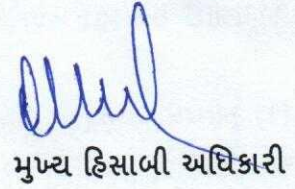 મુખ્ય હિસાબી અધિકારી